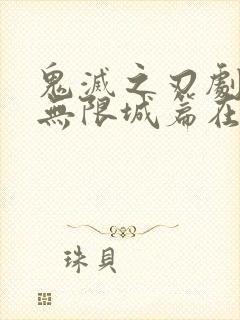 鬼滅之刃劇
無限城篇在
珠貝